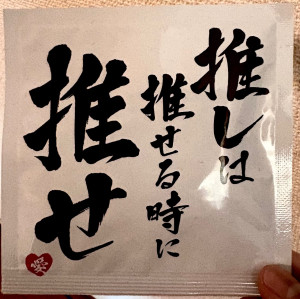 推しは
推せる時に
推せ
愛